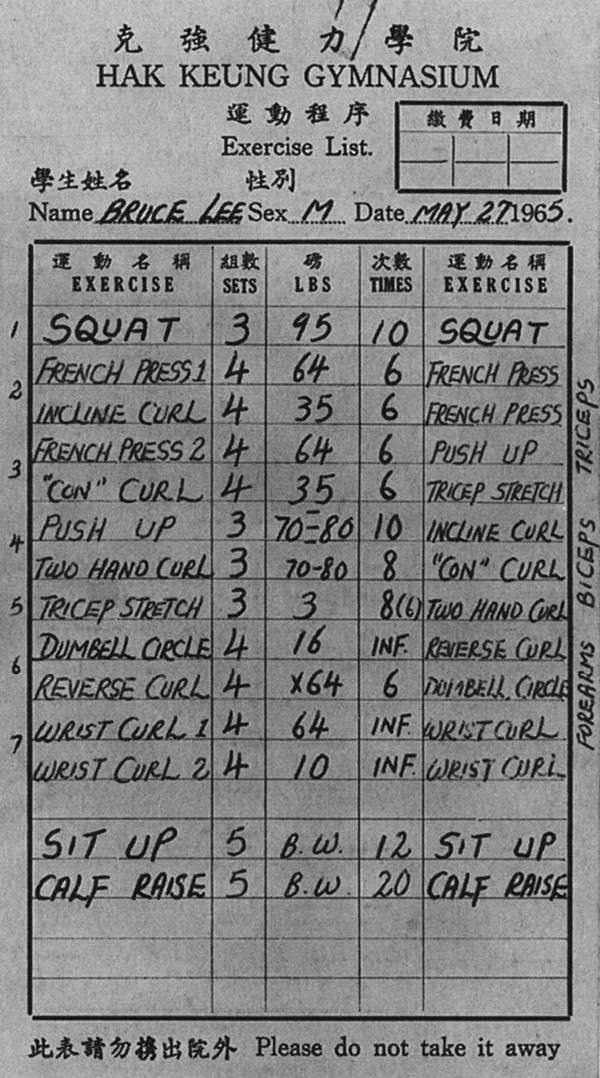 克強健力學院
HAK KEUNG GYMNASIUM
運動程序
Exercise List.
繳費日期
學生姓名 性別
Name BRUCE LEE Sex M Date MAY 27 1965.
運動名稱 組數 磅 次數 運動名稱
EXERCISE SETS LBS TIMES EXERCISE
1 SQUAT 3 95 10 SQUAT
FRENCH PRESS 1 4 64 6 FRENCH PRESS
2
INCLINE CURL 4 35 6 FRENCH PRESS
FRENCH PRESS 2 4 64 6 PUSH UP
3
"CON" CURL 4 35 6 TRICEP STRETCH
PUSH UP 3 70-80 10 INCLINE CURL
4
TWO HAND CURL 3 70-80 8 "CON" CURL
5 TRICEP STRETCH 3 3 8(6) TWO HAND CURL
DUMBELL CIRCLE 4 16 INF. REVERSE CURL
6
REVERSE CURL 4 X64 6 DUMBELL CIRCLE
WRIST CURL 1 4 64 INF. WRIST CURL
7
WRIST CURL 2 4 10 INF. WRIST CURL
SIT UP 5 B.W. 12 SIT UP
CALF RAISE 5 B.W. 20 CALF RAISE
TRICEPS
BICEPS
FOREARMS
此表請勿携出院外 Please do not take it away